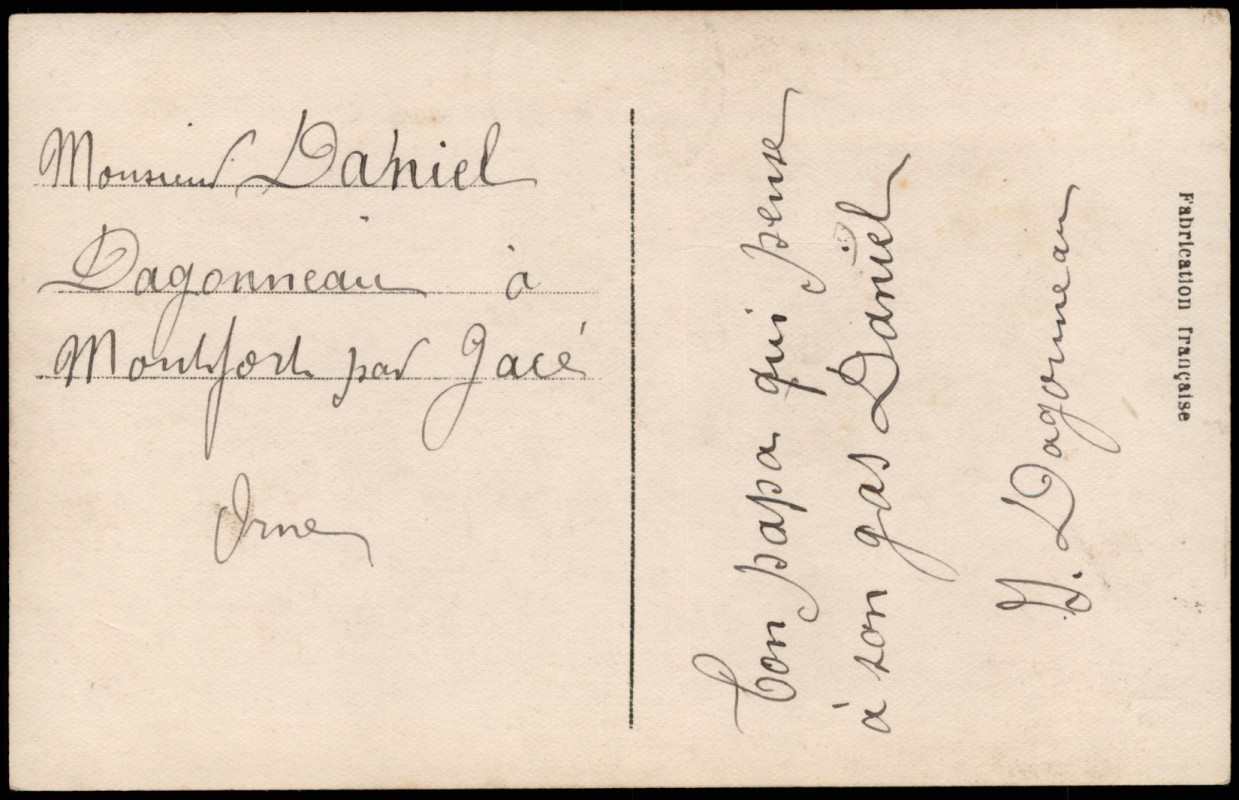 Monsieur Daniel
Dagonneau à
Montfort par Gacé
Orne
Ton papa qui pense
à son gas Daniel
Dagonneau
Fabrication française